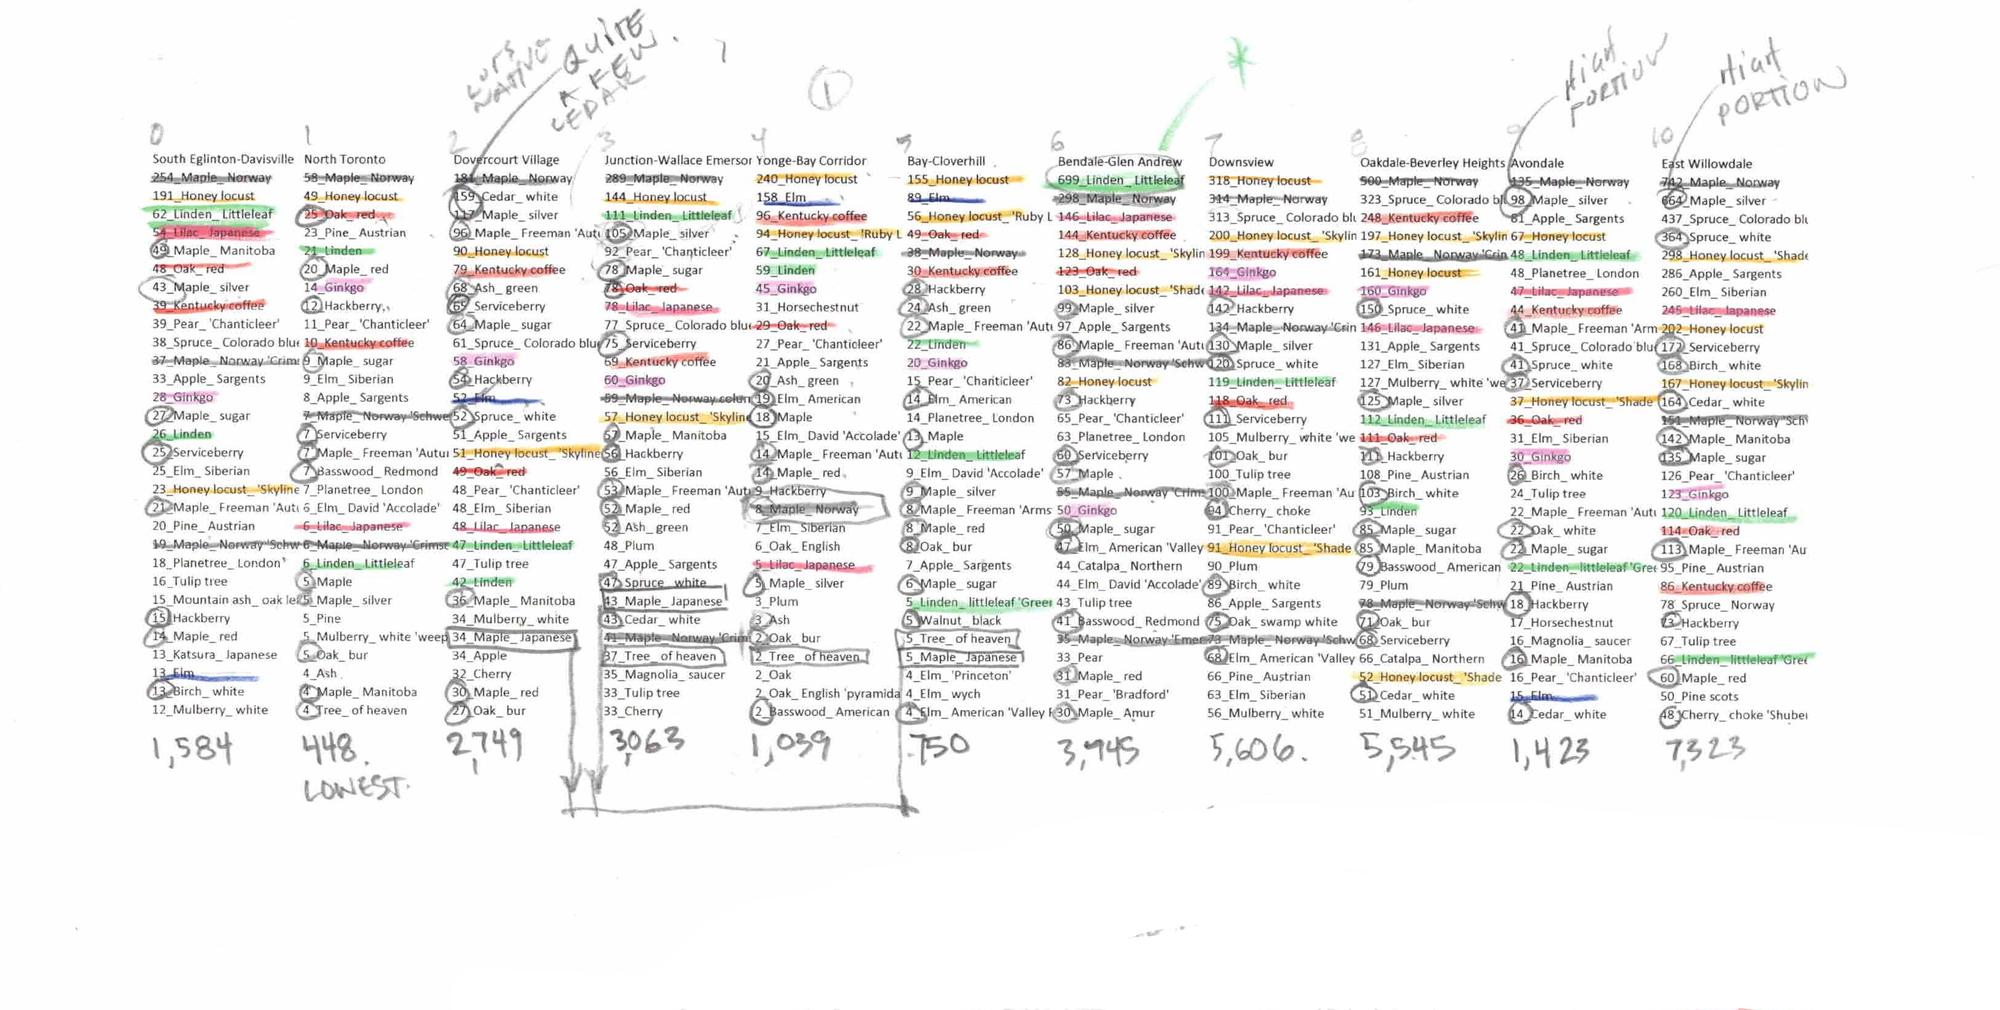 LOTS
NATIVE
QUITE
A FEW
CEDAR
1
*
HIGH
PORTION
HIGH
PORTION
0
South Eglinton-Davisville
254_Maple_ Norway
191_Honey locust
62_Linden_ Littleleaf
54_Lilac_ Japanese
49_Maple_ Manitoba
48_Oak_ red
43_Maple_ silver
39_Kentucky coffee
39_Pear_ 'Chanticleer'
38_Spruce_ Colorado blu
37_Maple_ Norway 'Crim
33_Apple_ Sargents
28_Ginkgo
27_Maple_ sugar
26_Linden
25_Serviceberry
25_Elm_ Siberian
23_Honey locust_ 'Skyline
21_Maple_ Freeman 'Aut
20_Pine_ Austrian
19_Maple_ Norway 'Schw
18_Planetree_ London
16_Tulip tree
15_Mountain ash_ oak le
15_Hackberry
14_Maple_ red
13_Katsura_ Japanese
13_Elm
13_Birch_ white
12_Mulberry_ white
1,584
1
North Toronto
58_Maple_ Norway
49_Honey locust
25_Oak_ red
23_Pine_ Austrian
21_Linden
20_Maple_ red
14_Ginkgo
12_Hackberry
11_Pear_ 'Chanticleer'
10_Kentucky coffee
9_Maple_ sugar
9_Elm_ Siberian
8_Apple_ Sargents
7_Maple_ Norway 'Schwe
7_Serviceberry
7_Maple_ Freeman 'Autu
7_Basswood_ Redmond
7_Planetree_ London
6_Elm_ David 'Accolade'
6_Lilac_ Japanese
6_Maple_ Norway 'Crimso
6_Linden_ Littleleaf
5_Maple
5_Maple_ silver
5_Pine
5_Mulberry_ white 'weep
5_Oak_ bur
4_Ash
4_Maple_ Manitoba
4_Tree_ of heaven
448.
LOWEST.
2
Dovercourt Village
181_Maple_ Norway
159_Cedar_ white
117_Maple_ silver
96_Maple_ Freeman 'Aut
90_Honey locust
79_Kentucky coffee
68_Ash_ green
65_Serviceberry
64_Maple_ sugar
61_Spruce_ Colorado blu
58_Ginkgo
54_Hackberry
52_Elm
52_Spruce_ white
51_Apple_ Sargents
51_Honey locust_ 'Skyline
49_Oak_ red
48_Pear_ 'Chanticleer'
48_Elm_ Siberian
48_Lilac_ Japanese
47_Linden_ Littleleaf
47_Tulip tree
42_Linden
36_Maple_ Manitoba
34_Mulberry_ white
34_Maple_ Japanese
34_Apple
32_Cherry
30_Maple_ red
27_Oak_ bur
2,749
3
Junction-Wallace Emerson
289_Maple_ Norway
144_Honey locust
111_Linden_ Littleleaf
105_Maple_ silver
92_Pear_ 'Chanticleer'
78_Maple_ sugar
78_Oak_ red
78_Lilac_ Japanese
77_Spruce_ Colorado blu
75_Serviceberry
69_Kentucky coffee
60_Ginkgo
59_Maple_ Norway colum
57_Honey locust_ 'Skyline
57_Maple_ Manitoba
56_Hackberry
56_Elm_ Siberian
53_Maple_ Freeman 'Aut
52_Maple_ red
52_Ash_ green
48_Plum
47_Apple_ Sargents
47_Spruce_ white
43_Maple_ Japanese
43_Cedar_ white
41_Maple_ Norway 'Crim
37_Tree_ of heaven
35_Magnolia_ saucer
33_Tulip tree
33_Cherry
3,063
4
Yonge-Bay Corridor
240_Honey locust
158_Elm
96_Kentucky coffee
94_Honey locust_ 'Ruby L
67_Linden_ Littleleaf
59_Linden
45_Ginkgo
31_Horsechestnut
29_Oak_ red
27_Pear_ 'Chanticleer'
21_Apple_ Sargents
20_Ash_ green
19_Elm_ American
18_Maple
15_Elm_ David 'Accolade'
14_Maple_ Freeman 'Aut
14_Maple_ red
9_Hackberry
8_Maple_ Norway
7_Elm_ Siberian
6_Oak_ English
5_Lilac_ Japanese
5_Maple_ silver
3_Plum
3_Ash
2_Oak_ bur
2_Tree_ of heaven
2_Oak
2_Oak_ English 'pyramida
2_Basswood_ American
1,039
5
Bay-Cloverhill
155_Honey locust
89_Elm
56_Honey locust_ 'Ruby L
49_Oak_ red
38_Maple_ Norway
30_Kentucky coffee
28_Hackberry
24_Ash_ green
22_Maple_ Freeman 'Aut
22_Linden
20_Ginkgo
15_Pear_ 'Chanticleer'
14_Elm_ American
14_Planetree_ London
13_Maple
12_Linden_ Littleleaf
9_Elm_ David 'Accolade'
9_Maple_ silver
8_Maple_ Freeman 'Arms
8_Maple_ red
8_Oak_ bur
7_Apple_ Sargents
6_Maple_ sugar
5_Linden_ littleleaf 'Green
5_Walnut_ black
5_Tree_ of heaven
5_Maple_ Japanese
4_Elm_ 'Princeton'
4_Elm_ wych
4_Elm_ American 'Valley F
750
6
Bendale-Glen Andrew
699_Linden_ Littleleaf
298_Maple_ Norway
146_Lilac_ Japanese
144_Kentucky coffee
128_Honey locust_ 'Skylin
123_Oak_ red
103_Honey locust_ 'Shade
99_Maple_ silver
97_Apple_ Sargents
86_Maple_ Freeman 'Aut
83_Maple_ Norway 'Schw
82_Honey locust
73_Hackberry
65_Pear_ 'Chanticleer'
63_Planetree_ London
60_Serviceberry
57_Maple
55_Maple_ Norway 'Crim
50_Ginkgo
50_Maple_ sugar
47_Elm_ American 'Valley
44_Catalpa_ Northern
44_Elm_ David 'Accolade'
43_Tulip tree
41_Basswood_ Redmond
35_Maple_ Norway 'Emer
33_Pear
31_Maple_ red
31_Pear_ 'Bradford'
30_Maple_ Amur
3,945
7
Downsview
318_Honey locust
314_Maple_ Norway
313_Spruce_ Colorado blu
200_Honey locust_ 'Skylin
199_Kentucky coffee
164_Ginkgo
142_Lilac_ Japanese
142_Hackberry
134_Maple_ Norway 'Crin
130_Maple_ silver
120_Spruce_ white
119_Linden_ Littleleaf
118_Oak_ red
111_Serviceberry
105_Mulberry_ white 'we
101_Oak_ bur
100_Tulip tree
100_Maple_ Freeman 'Au
94_Cherry_ choke
91_Pear_ 'Chanticleer'
91_Honey locust_ 'Shade
90_Plum
89_Birch_ white
86_Apple_ Sargents
75_Oak_ swamp white
73_Maple_ Norway 'Schw
68_Elm_ American 'Valley
66_Pine_ Austrian
63_Elm_ Siberian
56_Mulberry_ white
5,606.
8
Oakdale-Beverley Heights
500_Maple_ Norway
323_Spruce_ Colorado bl
248_Kentucky coffee
197_Honey locust_ 'Skylin
173_Maple_ Norway 'Crin
161_Honey locust
160_Ginkgo
150_Spruce_ white
146_Lilac_ Japanese
131_Apple_ Sargents
127_Elm_ Siberian
127_Mulberry_ white 'we
125_Maple_ silver
112_Linden_ Littleleaf
111_Oak_ red
111_Hackberry
108_Pine_ Austrian
103_Birch_ white
93_Linden
85_Maple_ sugar
85_Maple_ Manitoba
79_Basswood_ American
79_Plum
78_Maple_ Norway 'Schw
71_Oak_ bur
68_Serviceberry
66_Catalpa_ Northern
52_Honey locust_ 'Shade
51_Cedar_ white
51_Mulberry_ white
5,545
9
Avondale
135_Maple_ Norway
98_Maple_ silver
81_Apple_ Sargents
67_Honey locust
48_Linden_ Littleleaf
48_Planetree_ London
47_Lilac_ Japanese
44_Kentucky coffee
41_Maple_ Freeman 'Arm
41_Spruce_ Colorado blu
41_Spruce_ white
37_Serviceberry
37_Honey locust_ 'Shade
36_Oak_ red
31_Elm_ Siberian
30_Ginkgo
26_Birch_ white
24_Tulip tree
22_Maple_ Freeman 'Aut
22_Oak_ white
22_Maple_ sugar
22_Linden_ littleleaf 'Gree
21_Pine_ Austrian
18_Hackberry
17_Horsechestnut
16_Magnolia_ saucer
16_Maple_ Manitoba
16_Pear_ 'Chanticleer'
15_Elm
14_Cedar_ white
1,423
10
East Willowdale
742_Maple_ Norway
664_Maple_ silver
437_Spruce_ Colorado blu
364_Spruce_ white
298_Honey locust_ 'Shade
286_Apple_ Sargents
260_Elm_ Siberian
245_Lilac_ Japanese
202_Honey locust
172_Serviceberry
168_Birch_ white
167_Honey locust_ 'Skylin
164_Cedar_ white
151_Maple_ Norway 'Sch
142_Maple_ Manitoba
135_Maple_ sugar
126_Pear_ 'Chanticleer'
123_Ginkgo
120_Linden_ Littleleaf
114_Oak_ red
113_Maple_ Freeman 'Au
95_Pine_ Austrian
86_Kentucky coffee
78_Spruce_ Norway
73_Hackberry
67_Tulip tree
66_Linden_ littleleaf 'Gree
60_Maple_ red
50_Pine_ scots
48_Cherry_ choke 'Shuber
7,323